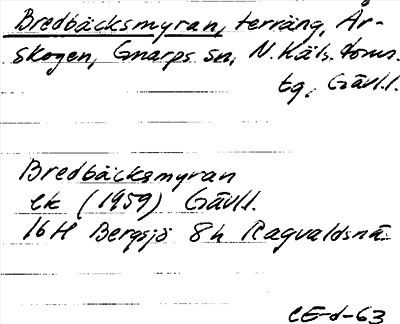 Bredbäcksmyran, terräng, År-
skogen, Gnarps sn, N. Häls. doms.
tg, Gävl.l.
Bredbäcksmyran
ek (1959) Gävl.l.
16H Bergsjö 8h Ragvaldsnä.
CE-d-63